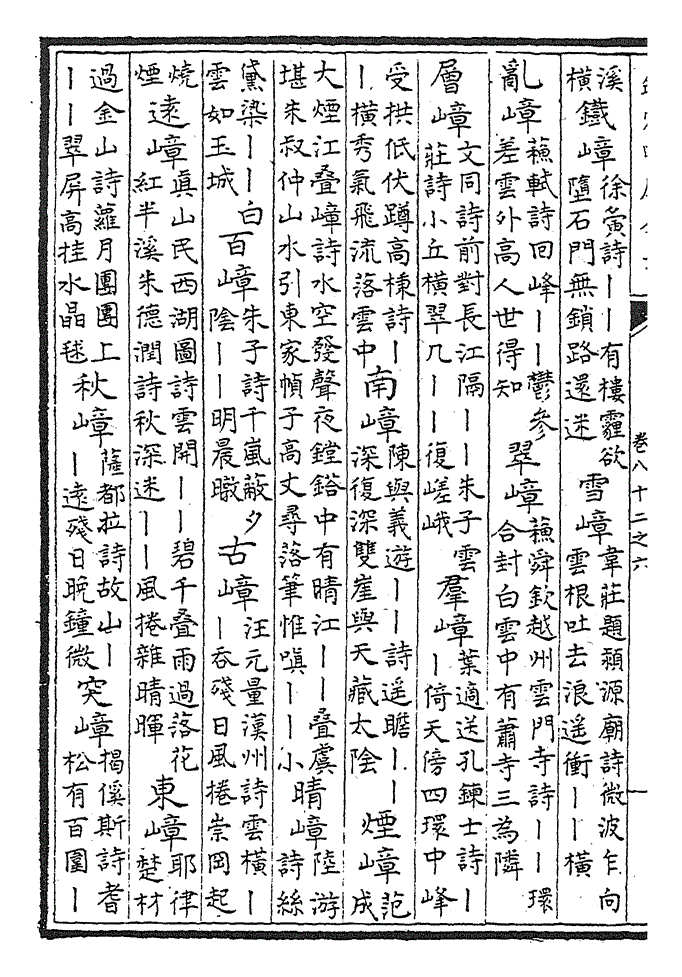 卷八十二之六
溪橫鐵嶂徐夤詩——有樓霾欲墮石門無鎖路還迷雪嶂韋莊題潁源廟詩微波乍向雲根吐去浪遥衝——橫
亂嶂蘇軾詩回峰——鬱參差雲外高人世得知翠嶂蘇舜欽越州雲門寺詩——環合封白雲中有蕭寺三為隣
層嶂文同詩前對長江隔——朱子雲莊詩小丘橫翠几——復嵯峨羣嶂葉適送孔鍊士詩——倚天傍四環中峰
受拱低伏蹲高棟詩——橫秀氣飛流落雲中南嶂陳與義遊——詩遥瞻——深復深雙崖與天藏太陰煙嶂范成
大煙江叠嶂詩水空發聲夜鏜鎝中有晴江——叠虞堪朱叔仲山水引東家幀子高丈尋落筆惟嗔——小晴嶂陸游詩絲
黛染——白雲如玉城百嶂朱子詩千嵐蔽夕陰——明晨暾古嶂汪元量漢州詩雲橫——吞殘日風捲崇岡起
燒煙遠嶂真山民西湖圖詩雲開——碧千叠雨過落花紅半溪朱德潤詩秋深迷——風捲雜晴暉東嶂耶律楚材
過金山詩蘿月團團上——翠屏高挂水晶毬秋嶂薩都拉詩故山——遠殘日晚鐘微突嶂揭傒斯詩耆松有百圍—